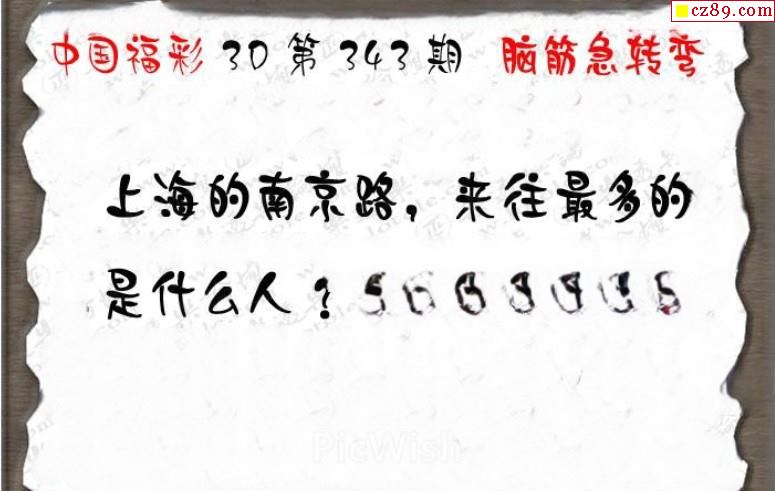 cz89.com
中国福彩 3D 第 343 期 脑筋急转弯
上海的南京路，来往最多的
是什么人？
PicWish